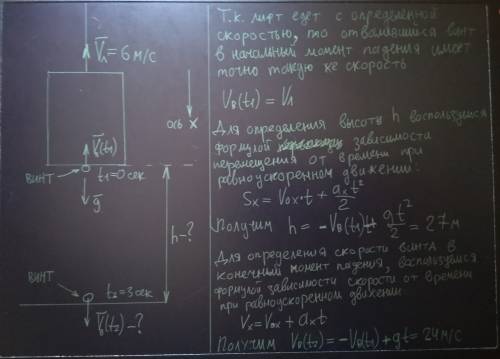 V̄л = 6 м/с
ось X
V̄в(t₁)
ВИНТ
t₁=0сек
ḡ
h-?
ВИНТ
t₂=3сек
V̄в(t₂)-?
Т.к. лифт едет с определенной
скоростью, то отвалившийся винт
в начальный момент падения имеет
точно такую же скорость
Vв(t₁) = Vл
Для определения высоты h воспользуемся
формулой зависимости
перемещения от времени при
равноускоренном движении:
Sₓ = V₀ₓ·t + aₓt²/2
Получим h = -Vв(t₁)t+ gt²/2 = 27м
Для определения скорости винта в
конечный момент падения, воспользуемся
формулой зависимости скорости от времени
при равноускоренном движении
Vₓ = V₀ₓ + aₓt
Получим Vв(t₂) = -Vв(t₁) + gt = 24м/с